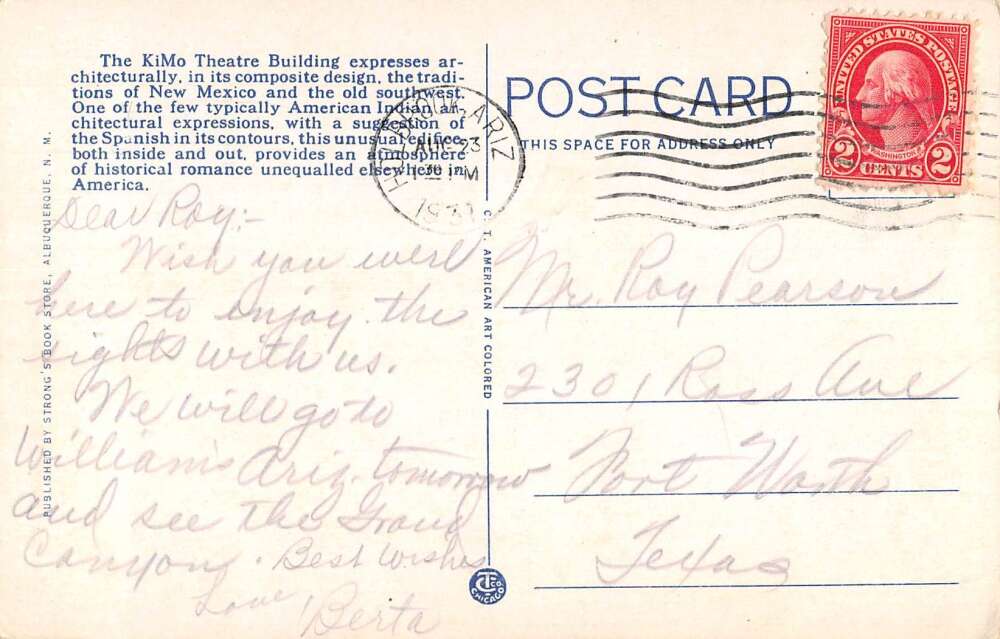 The KiMo Theatre Building expresses ar-
chitecturally, in its composite design, the tradi-
tions of New Mexico and the old southwest.
One of the few typically American Indian ar-
chitectural expressions, with a suggestion of
the Spanish in its contours, this unusual edifice,
both inside and out, provides an atmosphere
of historical romance unequalled elsewhere in
America.
Dear Roy:-
Wish you were
here to enjoy the
sights with us.
We will go to
Williams Ariz. tomorrow
and see the Grand
Canyon. Best Wishes
Love, Berta
PUBLISHED BY STRONG'S BOOK STORE, ALBUQUERQUE, N. M.
C. T. AMERICAN ART COLORED
POST CARD
THIS SPACE FOR ADDRESS ONLY
HOLBROOK, ARIZ
AUG 23
PM
UNITED STATES POSTAGE
WASHINGTON
2 CENTS 2
Mr. Roy Pearson
2301 Ross Ave
Fort Worth
Texas
CT CO
CHICAGO